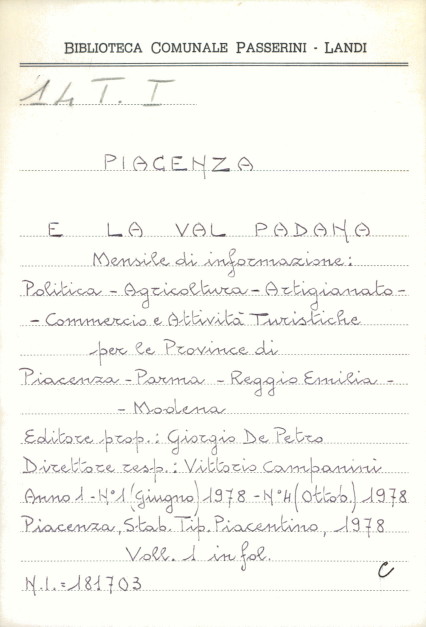 BIBLIOTECA COMUNALE PASSERINI - LANDI
14 T. I
PIACENZA
E LA VAL PADANA
Mensile di informazione:
Politica - Agricoltura - Artigianato -
- Commercio e Attività Turistiche
per le Province di
Piacenza - Parma - Reggio Emilia -
- Modena
Editore prop.: Giorgio De Petro
Direttore resp.: Vittorio Campanini
Anno 1 - N°1 (Giugno) 1978 - N°4 (Ottob.) 1978
Piacenza, Stab. Tip. Piacentino, 1978
Voll. 1 in fol.
C
N.I. = 181703